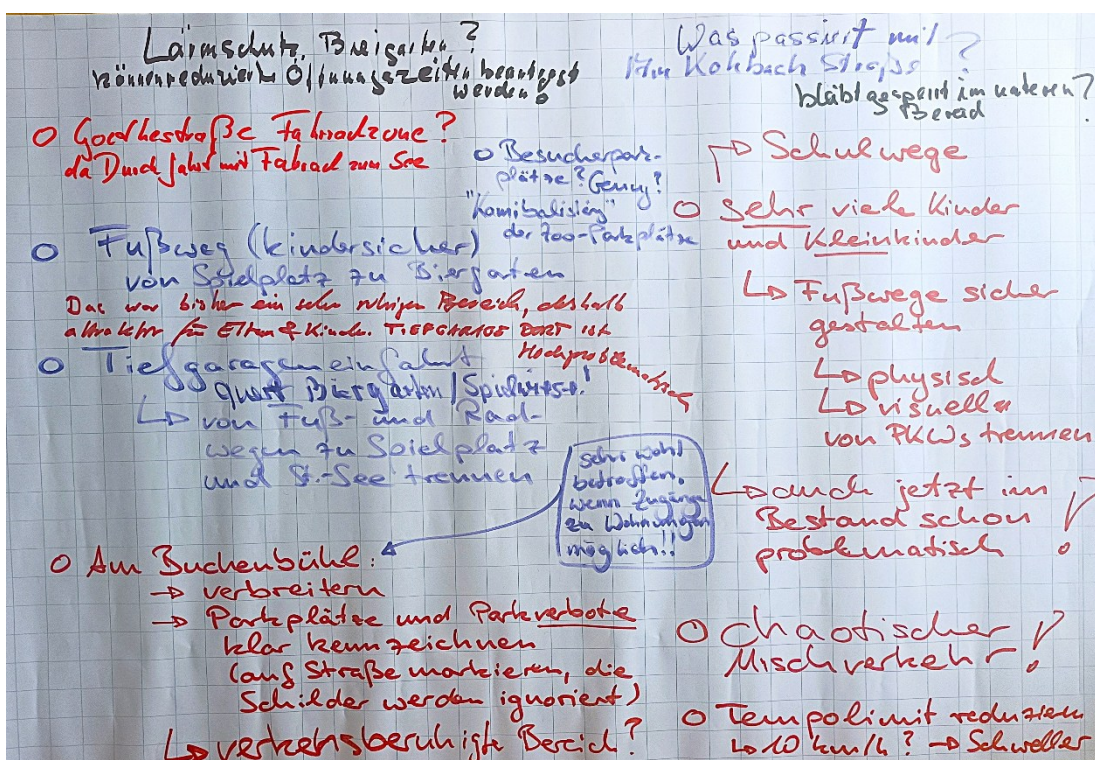 Lärmschutz, Biergarten?
können reduzierte Öffnungszeiten beantragt
werden?
O Goethestraße Fahrradzone?
da Durchfahrt mit Fahrad zum See
O Besucherpar-
plätze? Genug?
"Kannibalisierg"
der Zoo-Parkplätze
O Fußweg (kindersicher)
von Spielplatz zu Biergarten
Das war bisher ein sehr ruhiger Bereich, deshalb
attraktiv für Eltern & Kinder. TIEFGARAGE DORT ist
Hochproblematisch
O Tiefgarageneinfahrt
quert Biergarten/Spielwiese!
↳ von Fuß- und Rad-
wegen zu Spielplatz
und St.-See trennen
sehr wohl
betroffen,
wenn Zugänge
zu Wohnungen
möglich!!
O Am Buchenbühl:
→ verbreitern
→ Parkplätze und Parkverbote
klar kennzeichnen
(auf Straße markieren, die
Schilder werden ignoriert)
↳ verkehsberuhigte Bereich?
Was passiert mit
Am Kohbach Strass ?
bleibt gesperrt im unteren?
Bereich
→ Schulwege
O sehr viele Kinder
und Kleinkinder
↳ Fußwege sicher
gestalten
↳ physisch
↳ visuell
von PKWs trennen
↳ auch jetzt im
Bestand schon
problematisch !
O chaotischer
Mischverkehr!
O Tempolimit reduzieren
↳ 10 km/h? → Schweller